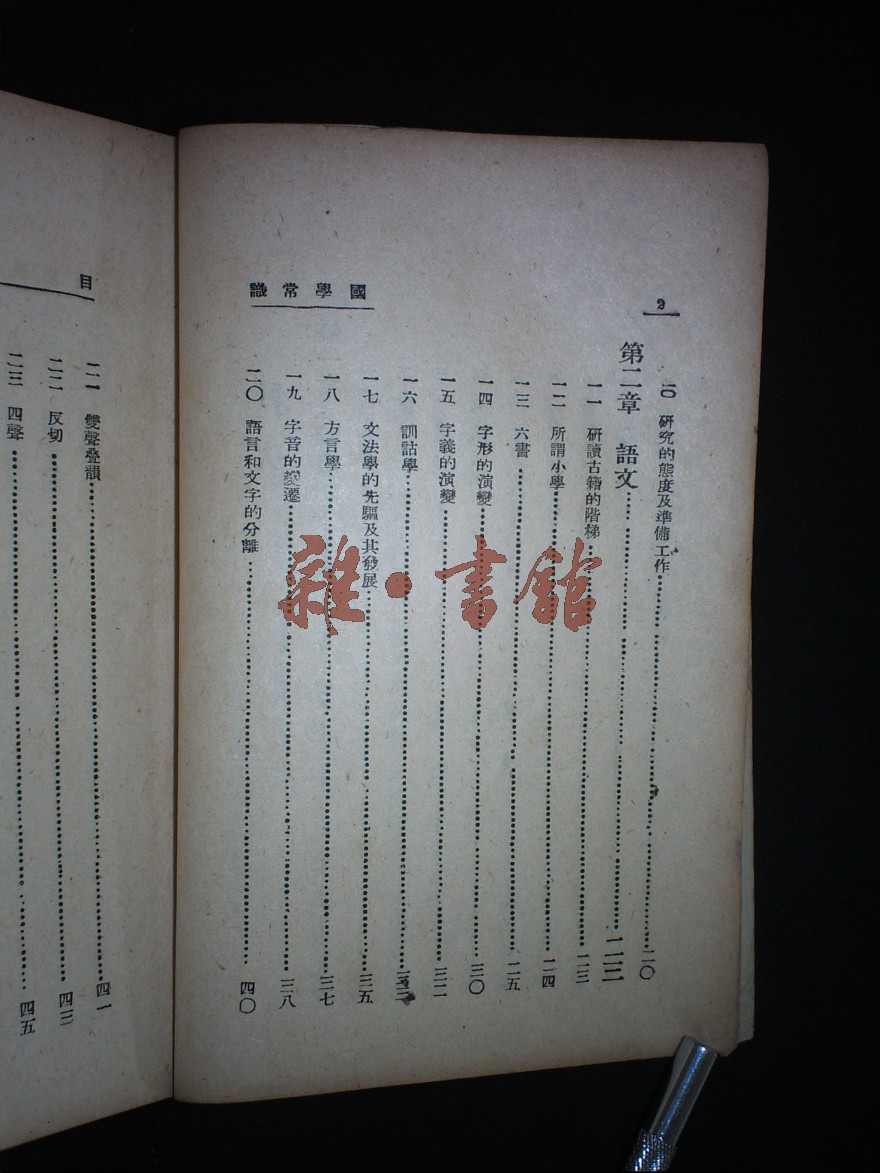 2
國學常識
一〇 研究的態度及準備工作……二〇
第二章 語文……二三
一一 研讀古籍的階梯……二三
一二 所謂小學……二四
一三 六書……二五
一四 字形的演變……三〇
一五 字義的演變……三二
一六 訓詁學……三三
一七 文法學的先驅及其發展……三五
一八 方言學……三七
一九 字音的變遷……三八
二〇 語言和文字的分離……四〇
目
二一 雙聲叠韻……四一
二二 反切……四三
二三 四聲……四五
雜·書館